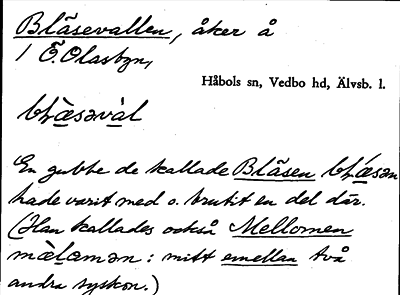 Blåsevallen, åker å
1 Ö. Olasbyn,
Håbols sn, Vedbo hd, Älvsb. l.
En gubbe de kallade Blåsen
hade varit med o. brutit en del där.
(Han kallades också Mellomen
: mitt emellan två
andra syskon.)